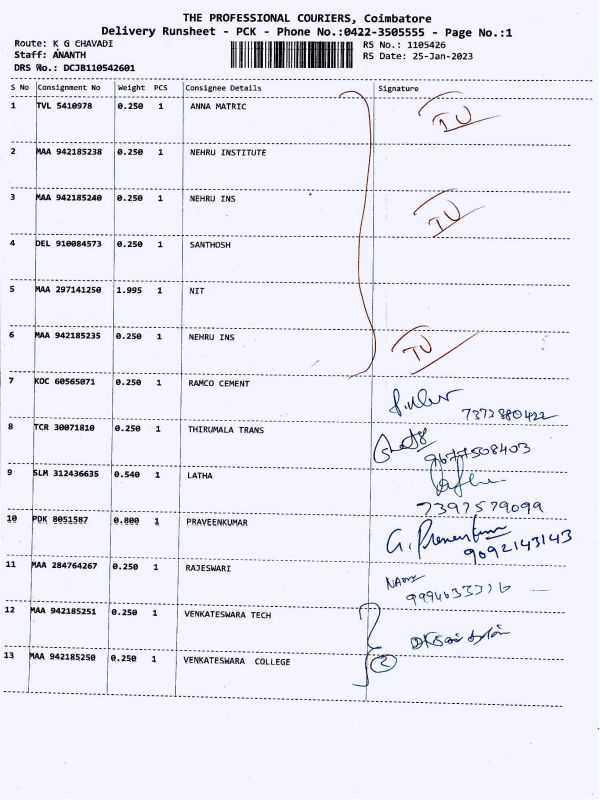 THE PROFESSIONAL COURIERS, Coimbatore
Delivery Runsheet - PCK - Phone No.:0422-3505555 - Page No.:1
Route: K G CHAVADI
Staff: ANANTH
DRS No.: DCJB110542601
RS No.: 1105426
RS Date: 25-Jan-2023
S No Consignment No Weight PCS Consignee Details Signature
1 TVL 5410978 0.250 1 ANNA MATRIC
2 MAA 942185238 0.250 1 NEHRU INSTITUTE
3 MAA 942185240 0.250 1 NEHRU INS
4 DEL 910084573 0.250 1 SANTHOSH
5 MAA 297141250 1.995 1 NIT
6 MAA 942185235 0.250 1 NEHRU INS
7 KDC 60565071 0.250 1 RAMCO CEMENT
7373880422
8 TCR 30071810 0.250 1 THIRUMALA TRANS
9677508403
9 SLM 312436635 0.540 1 LATHA
7397579099
10 PDK 8051587 0.800 1 PRAVEENKUMAR
9092143143
11 MAA 284764267 0.250 1 RAJESWARI
12 MAA 942185251 0.250 1 VENKATESWARA TECH
13 MAA 942185250 0.250 1 VENKATESWARA COLLEGE
2